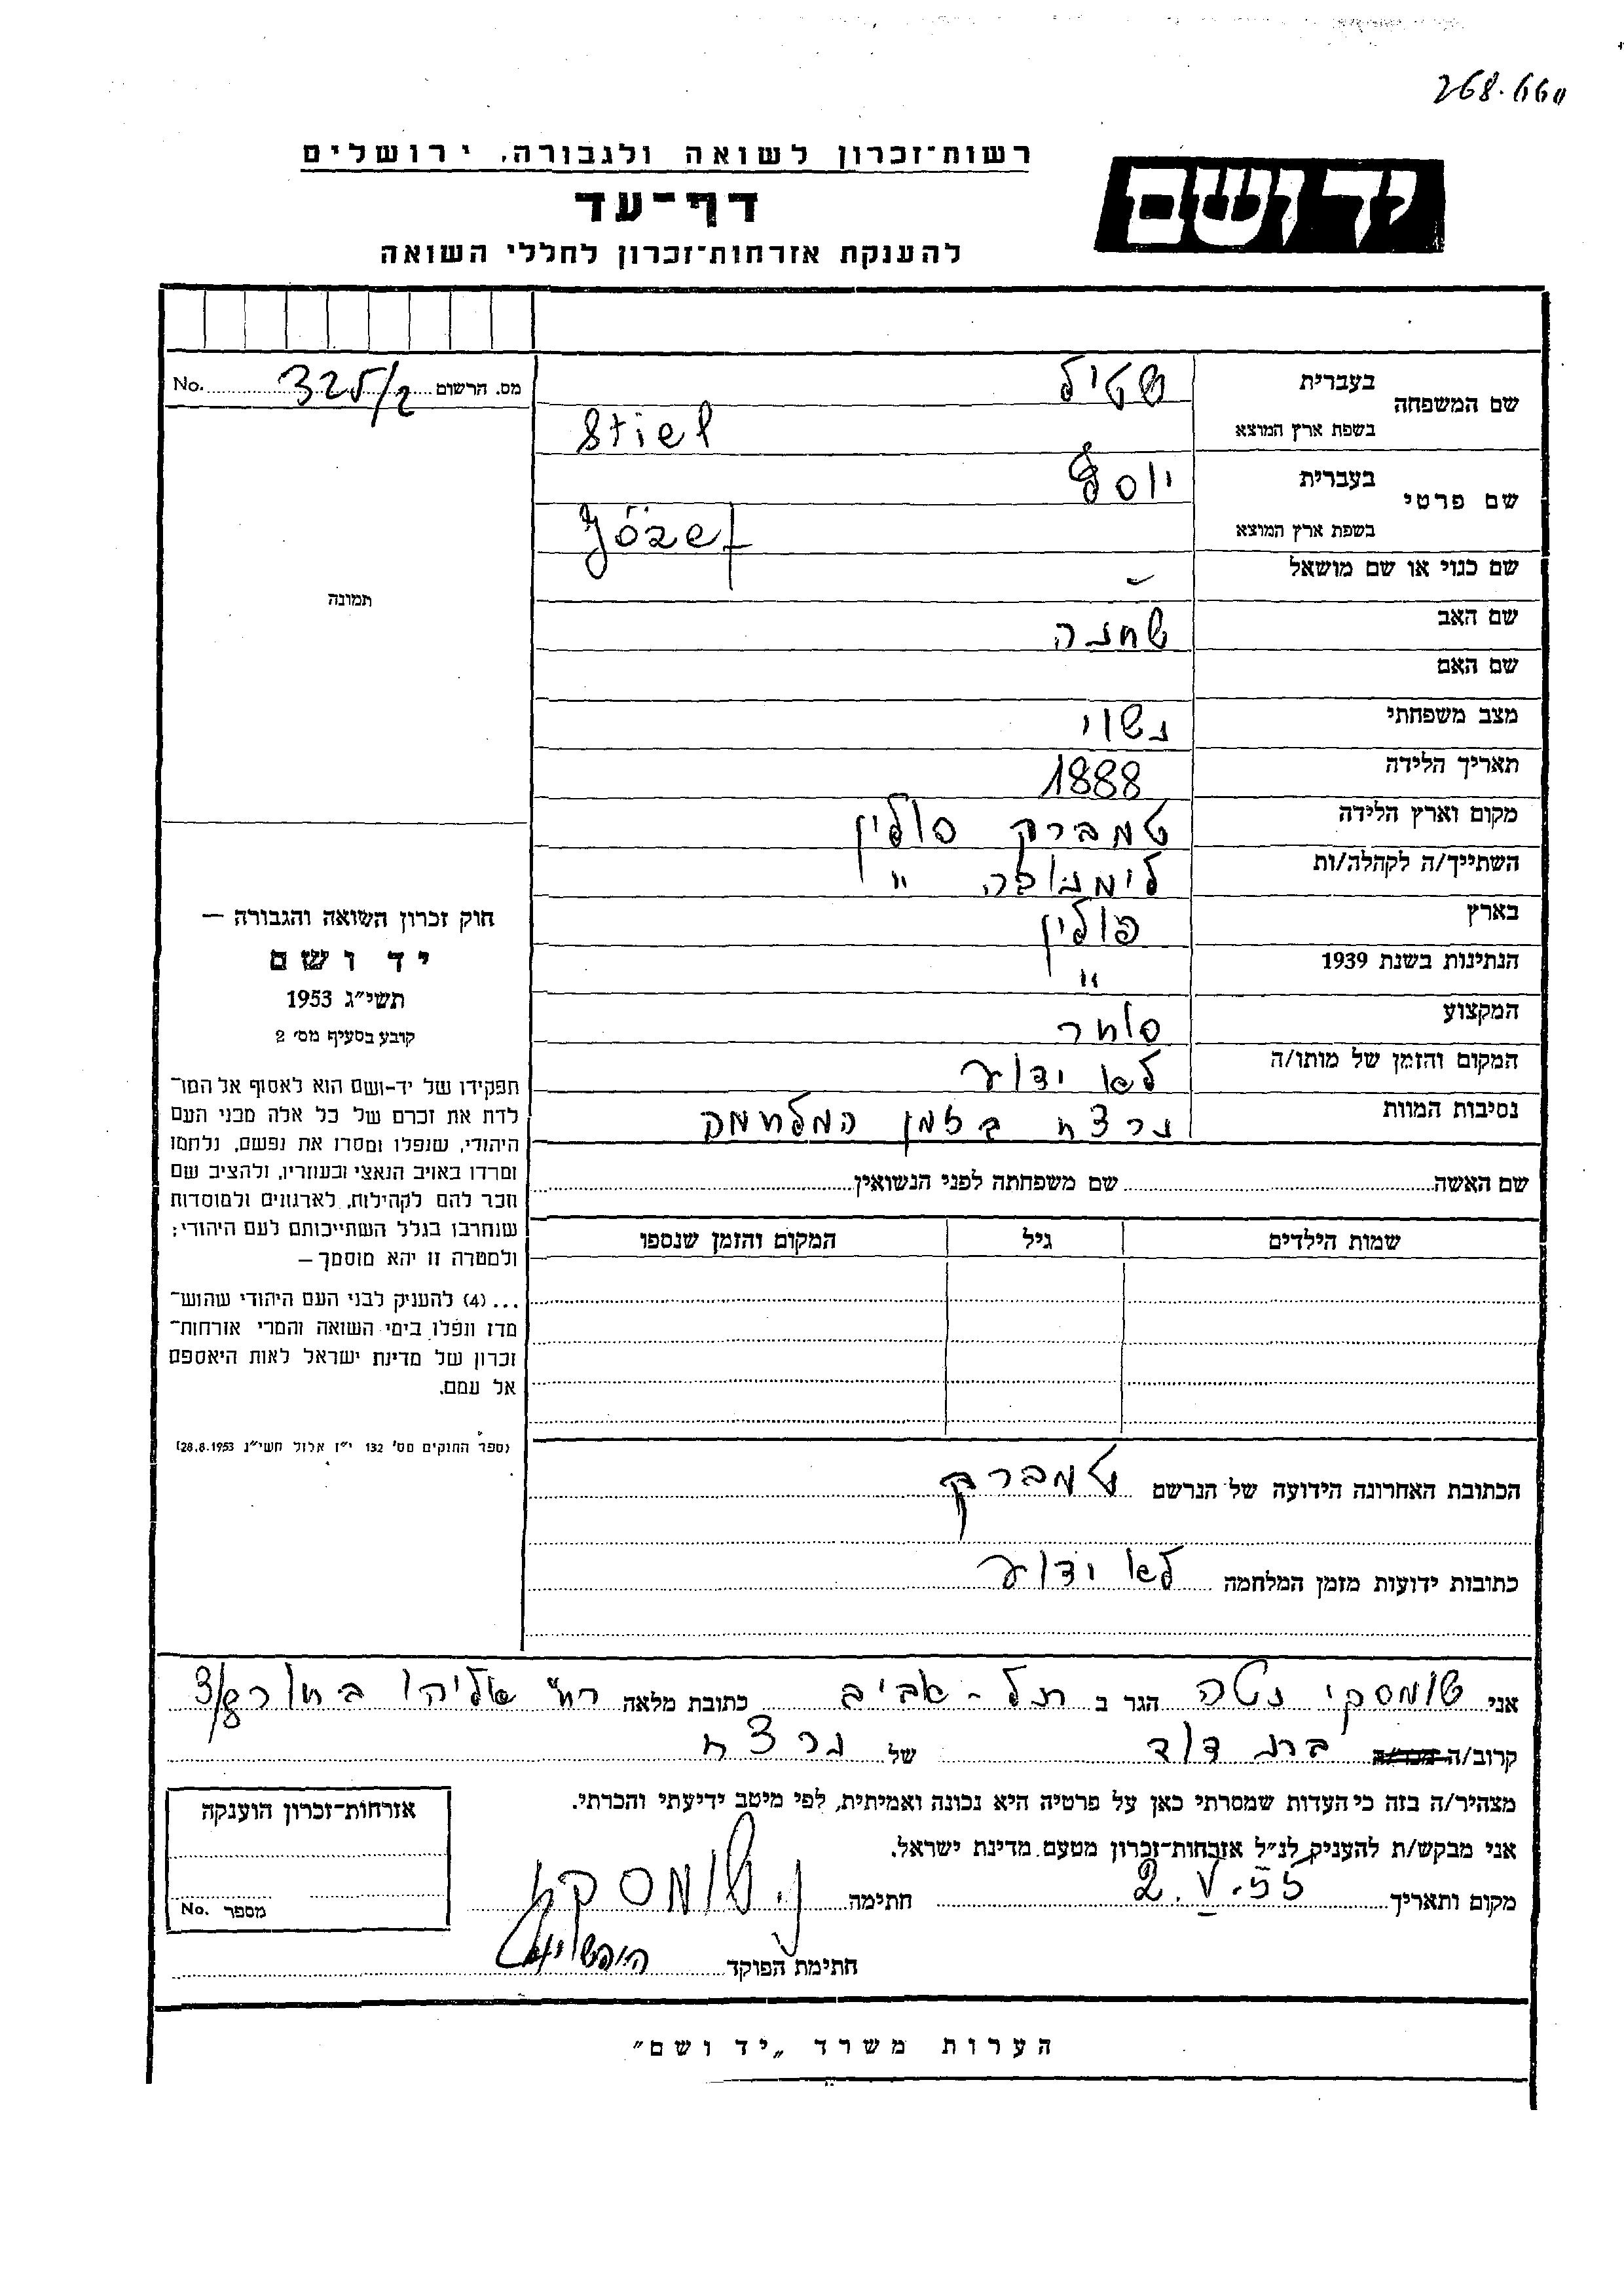 268.660
רשות־זכרון לשואה ולגבורה, ירושלים
יד ושם
דף־עד
להענקת אזרחות־זכרון לחללי השואה
No. 325/2 מס. הרשום
שם המשפחה בעברית שטיל
בשפת ארץ המוצא Stiel
שם פרטי בעברית יוסף
בשפת ארץ המוצא Józef
שם כנוי או שם מושאל -
תמונה
שם האב שחנה
שם האם
מצב משפחתי נשוי
תאריך הלידה 1888
מקום וארץ הלידה טמברק פולין
השתייך/ה לקהלה/ות לימנובה "
בארץ פולין
הנתינות בשנת 1939 "
המקצוע סוחר
המקום והזמן של מותו/ה לא ידוע
נסיבות המוות נרצח בזמן המלחמה
חוק זכרון השואה והגבורה —
יד ושם
תשי״ג 1953
קובע בסעיף מס׳ 2
תפקידו של יד-ושם הוא לאסוף אל המו־
לדת את זכרם של כל אלה מבני העם
היהודי, שנפלו ומסרו את נפשם, נלחמו
ומרדו באויב הנאצי ובעוזריו, ולהציב שם
וזכר להם לקהילות, לארגונים ולמוסדות
שנחרבו בגלל השתייכותם לעם היהודי;
ולמטרה זו יהא מוסמך —
...(4) להעניק לבני העם היהודי שהוש־
מדו ונפלו בימי השואה והמרי אזרחות־
זכרון של מדינת ישראל לאות היאספם
אל עמם.
(ספר החוקים מס׳ 132 י״ז אלול תשי״ג 28.8.1953)
שם האשה שם משפחתה לפני הנשואין
שמות הילדים גיל המקום והזמן שנספו
הכתובת האחרונה הידועה של הנרשם טמברק
כתובות ידועות מזמן המלחמה לא ידוע
אני שומסקי נטה הגר ב תל-אביב כתובת מלאה רח׳ אליהו
קרוב/ה של נרצח
מצהיר/ה בזה כי העדות שמסרתי כאן על פרטיה היא נכונה ואמיתית, לפי מיטב ידיעתי והכרתי.
אני מבקש/ת להעניק לנ״ל אזרחות־זכרון מטעם מדינת ישראל.
מקום ותאריך 2.V.55 חתימה נ. שומסקי
חתימת הפוקד
אזרחות־זכרון הוענקה
No. מספר
הערות משרד „יד ושם״